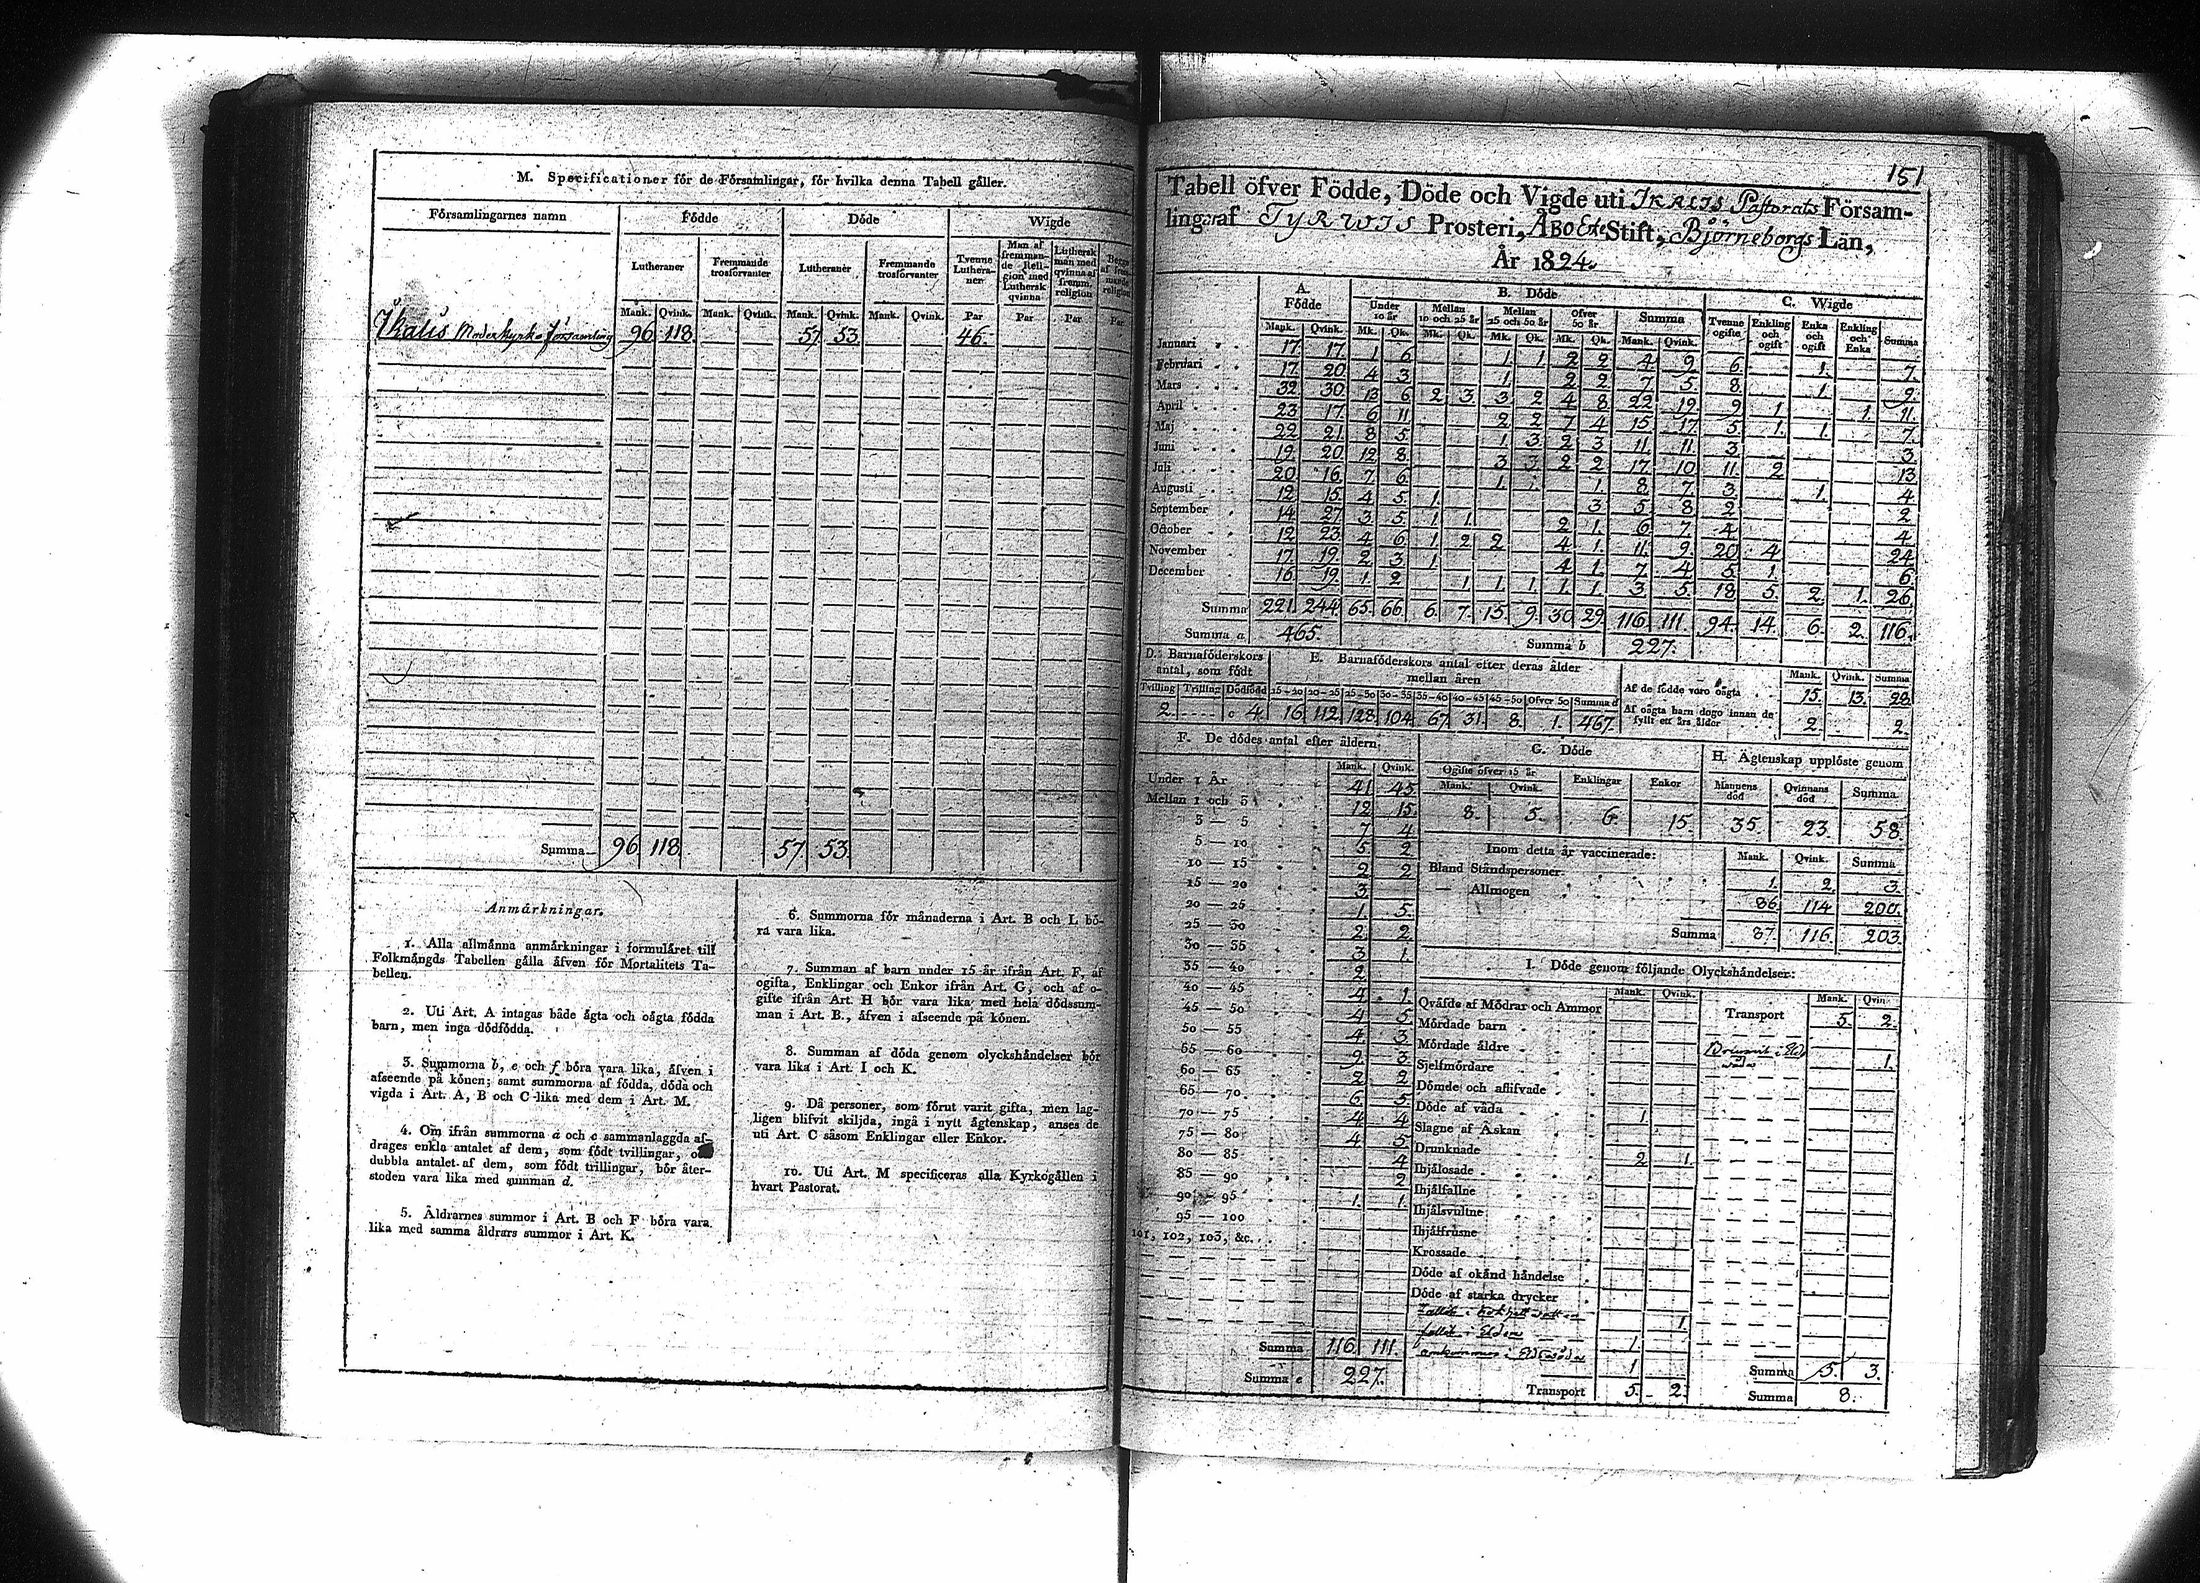 M. Specificationer för de Församlingar, för hvilka denna Tabell gäller.
Församlingarnes namn Födde Döde Wigde
Lutheraner Fremmande trosförvanter Lutheraner Fremmande trosförvanter Tvenne Lutheraner Man af fremmande Religion med Luthersk qvinna Luthersk man med qvinna af fremm. religion
Mank. Qvink. Mank. Qvink. Mank. Qvink. Mank. Qvink. Par Par Par Par
Ikalis Moderkyrko församling 96 118 57 53 46.
Summa 96 118 57 53
Anmärkningar.
1. Alla allmänna anmärkningar i formuläret till
Folkmängds Tabellen gälla äfven för Mortalitets Ta-
bellen.
2. Uti Art. A intagas både ägta och oägta födda
barn, men inga dödfödda.
3. Summorna b, e och f böra vara lika, äfven i
afseende på könen; samt summorna af födda, döda och
vigda i Art. A, B och C lika med dem i Art. M.
4. Om ifrån summorna a och c sammanlaggda af-
drages enkla antalet af dem, som födt tvillingar, och
dubbla antalet af dem, som födt trillingar, bör åter-
stoden vara lika med summan d.
5. Åldrarnes summor i Art. B och F böra vara
lika med samma åldrars summor i Art. K.
6. Summorna för månaderna i Art. B och L bö-
ra vara lika.
7. Summan af barn under 15 år ifrån Art. F, af
ogifta, Enklingar och Enkor ifrån Art. G, och af o-
gifte ifrån Art. H bör vara lika med hela dödssum-
man i Art. B., äfven i afseende på könen.
8. Summan af döda genom olyckshändelser bör
vara lika i Art. I och K.
9. Då personer, som förut varit gifta, men lag-
ligen blifvit skiljda, ingå i nytt ägtenskap, anses de
uti Art. C såsom Enklingar eller Enkor.
10. Uti Art. M specificeras alla Kyrkogällen i
hvart Pastorat.
151
Tabell öfver Födde, Döde och Vigde uti IKALIS Pastorats Försam-
lingar af TYRWIS Prosteri, ÅBO Erke Stift, Björneborgs Län,
År 1824.
A. Födde B. Döde C. Wigde
Under 10 år Mellan 10 och 25 år Mellan 25 och 50 år Öfver 50 år Summa Tvenne ogifte Enkling och ogift Enka och ogift Enkling och Enka Summa
Mank. Qvink. Mk. Qk. Mk. Qk. Mk. Qk. Mk. Qk. Mank. Qvink.
Januari 17. 17. 1 6 1. 1 2 2 4 9 6. 1. 7.
Februari 17. 20 4 3 1. 2 2 7 5 8. 1. 9.
Mars 32 30. 13 6 2 3. 3 2 4 8 22 19. 9 1. 1. 11.
April 23 17. 6 11 2 2 7 4 15 17 5. 1. 1. 7.
Maj 22 21. 8 5. 1. 3 2 3 11. 11. 3 3.
Juni 19. 20 12 8. 3 3 2 2 17 10 11. 2 13
Juli 20 16. 7 6. 1. 1. 1. 8. 7. 3. 1. 4
Augusti 12 15. 4 5 1. 3 5 8 2 2
September 14 27 3. 5. 1 1. 2 1. 6 7. 4 4.
October 12 23 4 6 1. 2 2 4 1. 11. 9 20 4 24
November 17 19. 2 3. 1. 4 1. 7 4 5 1. 6
December 16. 19. 1. 2 1. 1. 1. 1. 1. 3 5. 18 5. 2. 1. 26.
Summa 221. 244. 65. 66. 6. 7. 15. 9. 30. 29. 116. 111. 94. 14. 6. 2. 116.
Summa a 465. Summa b 227.
D. Barnaföderskors antal, som födt
E. Barnaföderskors antal efter deras ålder mellan åren
Tvilling Trilling Dödfödd 15-20 20-25 25-30 30-35 35-40 40-45 45-50 Öfver 50 Summa d
2. c 4. 16. 112. 128. 104. 67. 31. 8. 1. 467.
Mank. Qvink. Summa
Af de födde voro oägta 15. 13. 28.
Af oägta barn dogo innan de fyllt ett års ålder 2. 2.
F. De dödes antal efter åldern.
Mank. Qvink.
Under 1 År 41 45
Mellan 1 och 3 12 15.
3 — 5 7 4
5 — 10 5. 2
10 — 15 2 2
15 — 20 3.
20 — 25 1. 5.
25 — 30 2. 2
30 — 35 3 1.
35 — 40 2
40 — 45 4 1.
45 — 50 4 5
50 — 55 4 3
55 — 60 9. 3
60 — 65 2 2
65 — 70 6. 5
70 — 75 4 4
75 — 80 4 5
80 — 85 4
85 — 90 2
90 — 95 1. 1.
95 — 100
101, 102, 103, &c.
Summa 116. 111.
Summa e 227.
G. Döde
Ogifte öfver 15 år Enklingar Enkor
Mank. Qvink.
8. 5. 6. 15.
H. Ägtenskap upplöste genom
Mannens död Qvinnans död Summa
35. 23. 58.
Inom detta år vaccinerade: Mank. Qvink. Summa
Bland Ståndspersoner 1. 2. 3.
— Allmogen 86 114 200.
Summa 87. 116. 203.
I. Döde genom följande Olyckshändelser:
Mank. Qvink. Mank. Qvin.
Qväfde af Mödrar och Ammor Transport 5. 2.
Mördade barn
Mördade äldre 1.
Sjelfmördare
Dömde och aflifvade
Döde af våda 1.
Slagne af Åskan
Drunknade 2 1.
Ihjälosade
Ihjälfallne
Ihjälsvultne
Ihjälfrusne
Krossade
Döde af okänd händelse
Döde af starka drycker
1.
fallit i Elden 1.
omkommen i Eldsvåda 1
Transport 5. 2.
Summa 5. 3.
Summa 8.